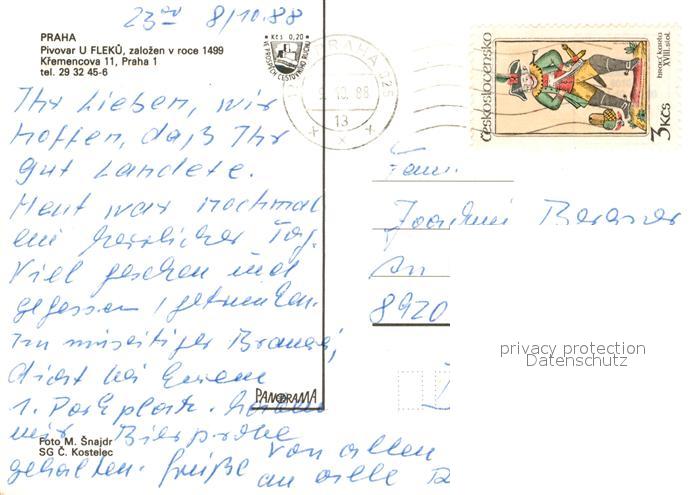 23⁰⁰ 8/10.88
PRAHA
Pivovar U FLEKŮ, založen v roce 1499
Křemencova 11, Praha 1
tel. 29 32 45-6
Kčs 0,20
VE PROSPĚCH CESTOVNÍHO RUCHU
PRAHA 025
10. 88
13
Československo
hrací karta
XVIII. stol.
3 Kčs
Ihr Lieben, wir
hoffen, daß Ihr
gut landete.
Heut war nochmal
ein herrlicher Tag.
Viel gesehen und
gegessen / getrunken.
In Brauerei,
dicht bei Eurem
1. Parkplatz. haben
wir Bierprobe
gehalten. Grüße von allen
an alle
PANORAMA
Foto M. Šnajdr
SG Č. Kostelec
Fam.
Joachim
8920
privacy protection
Datenschutz